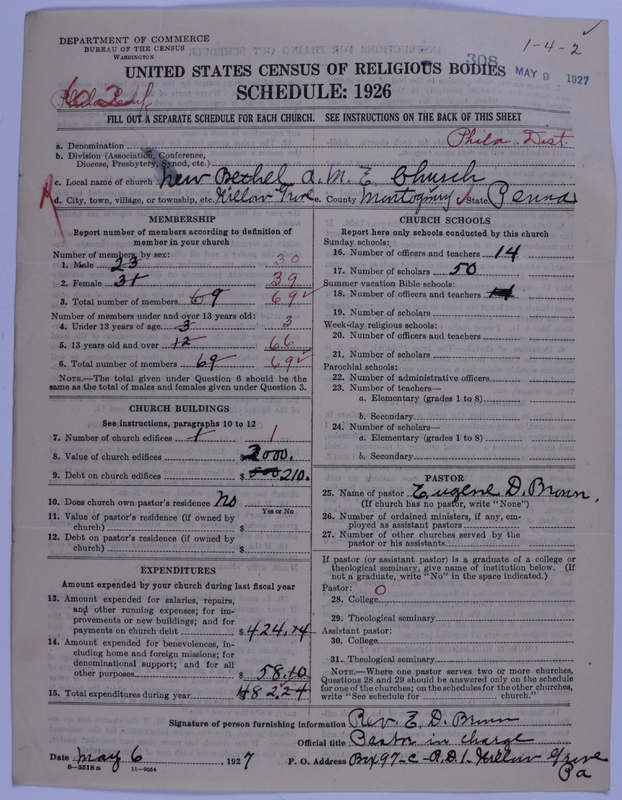 DEPARTMENT OF COMMERCE
BUREAU OF THE CENSUS
WASHINGTON
1-4-2
308
MAY 9 1927
UNITED STATES CENSUS OF RELIGIOUS BODIES
SCHEDULE: 1926
FILL OUT A SEPARATE SCHEDULE FOR EACH CHURCH. SEE INSTRUCTIONS ON THE BACK OF THIS SHEET
a. Denomination
Phila. Dist.
b. Division (Association, Conference,
Diocese, Presbytery, Synod, etc.)
c. Local name of church New Bethel A. M. E Church
d. City, town, village, or township, etc. Willow Grove e. County Montogmery State Penna
MEMBERSHIP
Report number of members according to definition of
member in your church
Number of members, by sex:
1. Male 23 30
2. Female 31 39
3. Total number of members 69 69
Number of members under and over 13 years old:
4. Under 13 years of age 3 3
5. 13 years old and over 12 66
6. Total number of members 69 69
NOTE.—The total given under Question 6 should be the
same as the total of males and females given under Question 3.
CHURCH BUILDINGS
See instructions, paragraphs 10 to 12
7. Number of church edifices 1 1
8. Value of church edifices $ 2000.
9. Debt on church edifices $ 500 210.
10. Does church own pastor's residence No
Yes or No
11. Value of pastor's residence (if owned by
church) $
12. Debt on pastor's residence (if owned by
church) $
EXPENDITURES
Amount expended by your church during last fiscal year
13. Amount expended for salaries, repairs,
and other running expenses; for im-
provements or new buildings; and for
payments on church debt $ 424.14
14. Amount expended for benevolences, in-
cluding home and foreign missions; for
denominational support; and for all
other purposes $ 58.10
15. Total expenditures during year 482.24
CHURCH SCHOOLS
Report here only schools conducted by this church
Sunday schools:
16. Number of officers and teachers 14
17. Number of scholars 50
Summer vacation Bible schools:
18. Number of officers and teachers
19. Number of scholars
Week-day religious schools:
20. Number of officers and teachers
21. Number of scholars
Parochial schools:
22. Number of administrative officers
23. Number of teachers—
a. Elementary (grades 1 to 8)
b. Secondary
24. Number of scholars—
a. Elementary (grades 1 to 8)
b. Secondary
PASTOR
25. Name of pastor Eugene D. Brown,
(If church has no pastor, write "None")
26. Number of ordained ministers, if any, em-
ployed as assistant pastors
27. Number of other churches served by the
pastor or his assistants
If pastor (or assistant pastor) is a graduate of a college or
theological seminary, give name of institution below. (If
not a graduate, write "No" in the space indicated.)
Pastor:
28. College O
29. Theological seminary
Assistant pastor:
30. College
31. Theological seminary
NOTE.—Where one pastor serves two or more churches,
Questions 28 and 29 should be answered only on the schedule
for one of the churches; on the schedules for the other churches,
write "See schedule for church."
Signature of person furnishing information Rev. E. D. Brown
Official title Pastor in charge
Date May 6, 1927 P. O. Address Box 97-C-R.D.1. Willow Grove
Pa
8-5518 a 11-9054